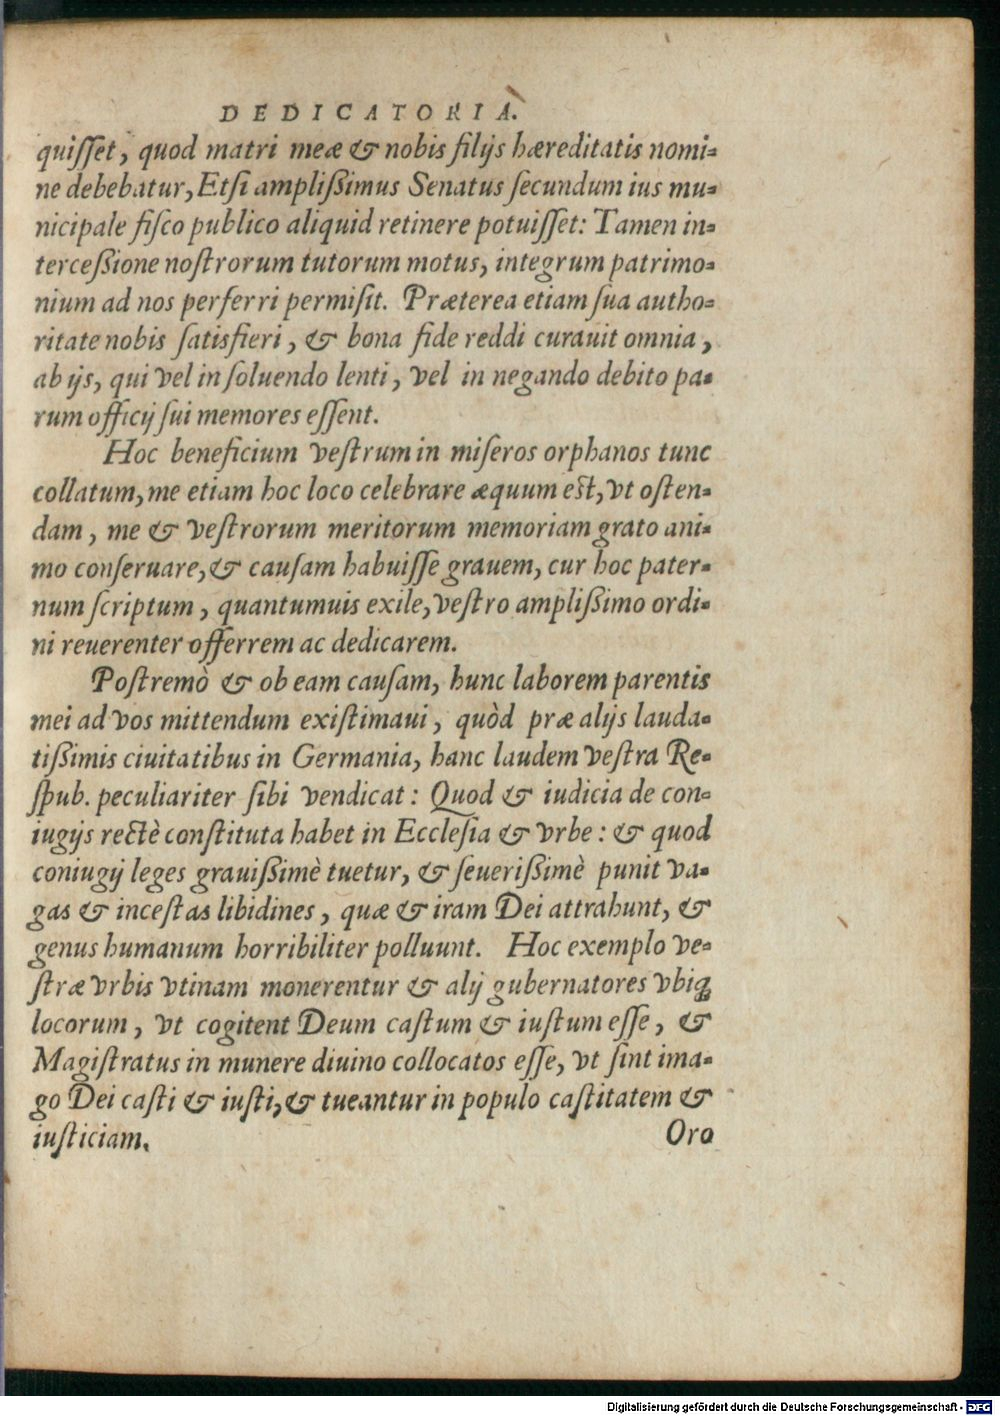 DEDICATORIA.
quiſſet, quod matri meæ & nobis filijs hæreditatis nomi-
ne debebatur, Etſi ampliſſimus Senatus ſecundum ius mu-
nicipale fiſco publico aliquid retinere potuiſſet: Tamen in-
terceßione noſtrorum tutorum motus, integrum patrimo-
nium ad nos perferri permiſit. Præterea etiam ſua autho-
ritate nobis ſatisfieri, & bona fide reddi curauit omnia,
ab ijs, qui vel in ſoluendo lenti, vel in negando debito pa-
rum officij ſui memores eſſent.
Hoc beneficium veſtrum in miſeros orphanos tunc
collatum, me etiam hoc loco celebrare æquum eſt, vt oſten-
dam, me & veſtrorum meritorum memoriam grato ani-
mo conſeruare, & cauſam habuiſſe grauem, cur hoc pater-
num ſcriptum, quantumuis exile, veſtro amplißimo ordi-
ni reuerenter offerrem ac dedicarem.
Poſtremò & ob eam cauſam, hunc laborem parentis
mei ad vos mittendum exiſtimaui, quòd præ alijs lauda-
tißimis ciuitatibus in Germania, hanc laudem veſtra Re-
ſpub. peculiariter ſibi vendicat: Quod & iudicia de con-
iugijs rectè conſtituta habet in Eccleſia & vrbe: & quod
coniugij leges grauißimè tuetur, & ſeuerißimè punit va-
gas & inceſtas libidines, quæ & iram Dei attrahunt, &
genus humanum horribiliter polluunt. Hoc exemplo ve-
ſtræ vrbis vtinam monerentur & alij gubernatores vbiq́;
locorum, vt cogitent Deum caſtum & iuſtum eſſe, &
Magiſtratus in munere diuino collocatos eſſe, vt ſint ima-
go Dei caſti & iuſti, & tueantur in populo caſtitatem &
iuſticiam.
Oro
Digitalisierung gefördert durch die Deutsche Forschungsgemeinschaft - DFG